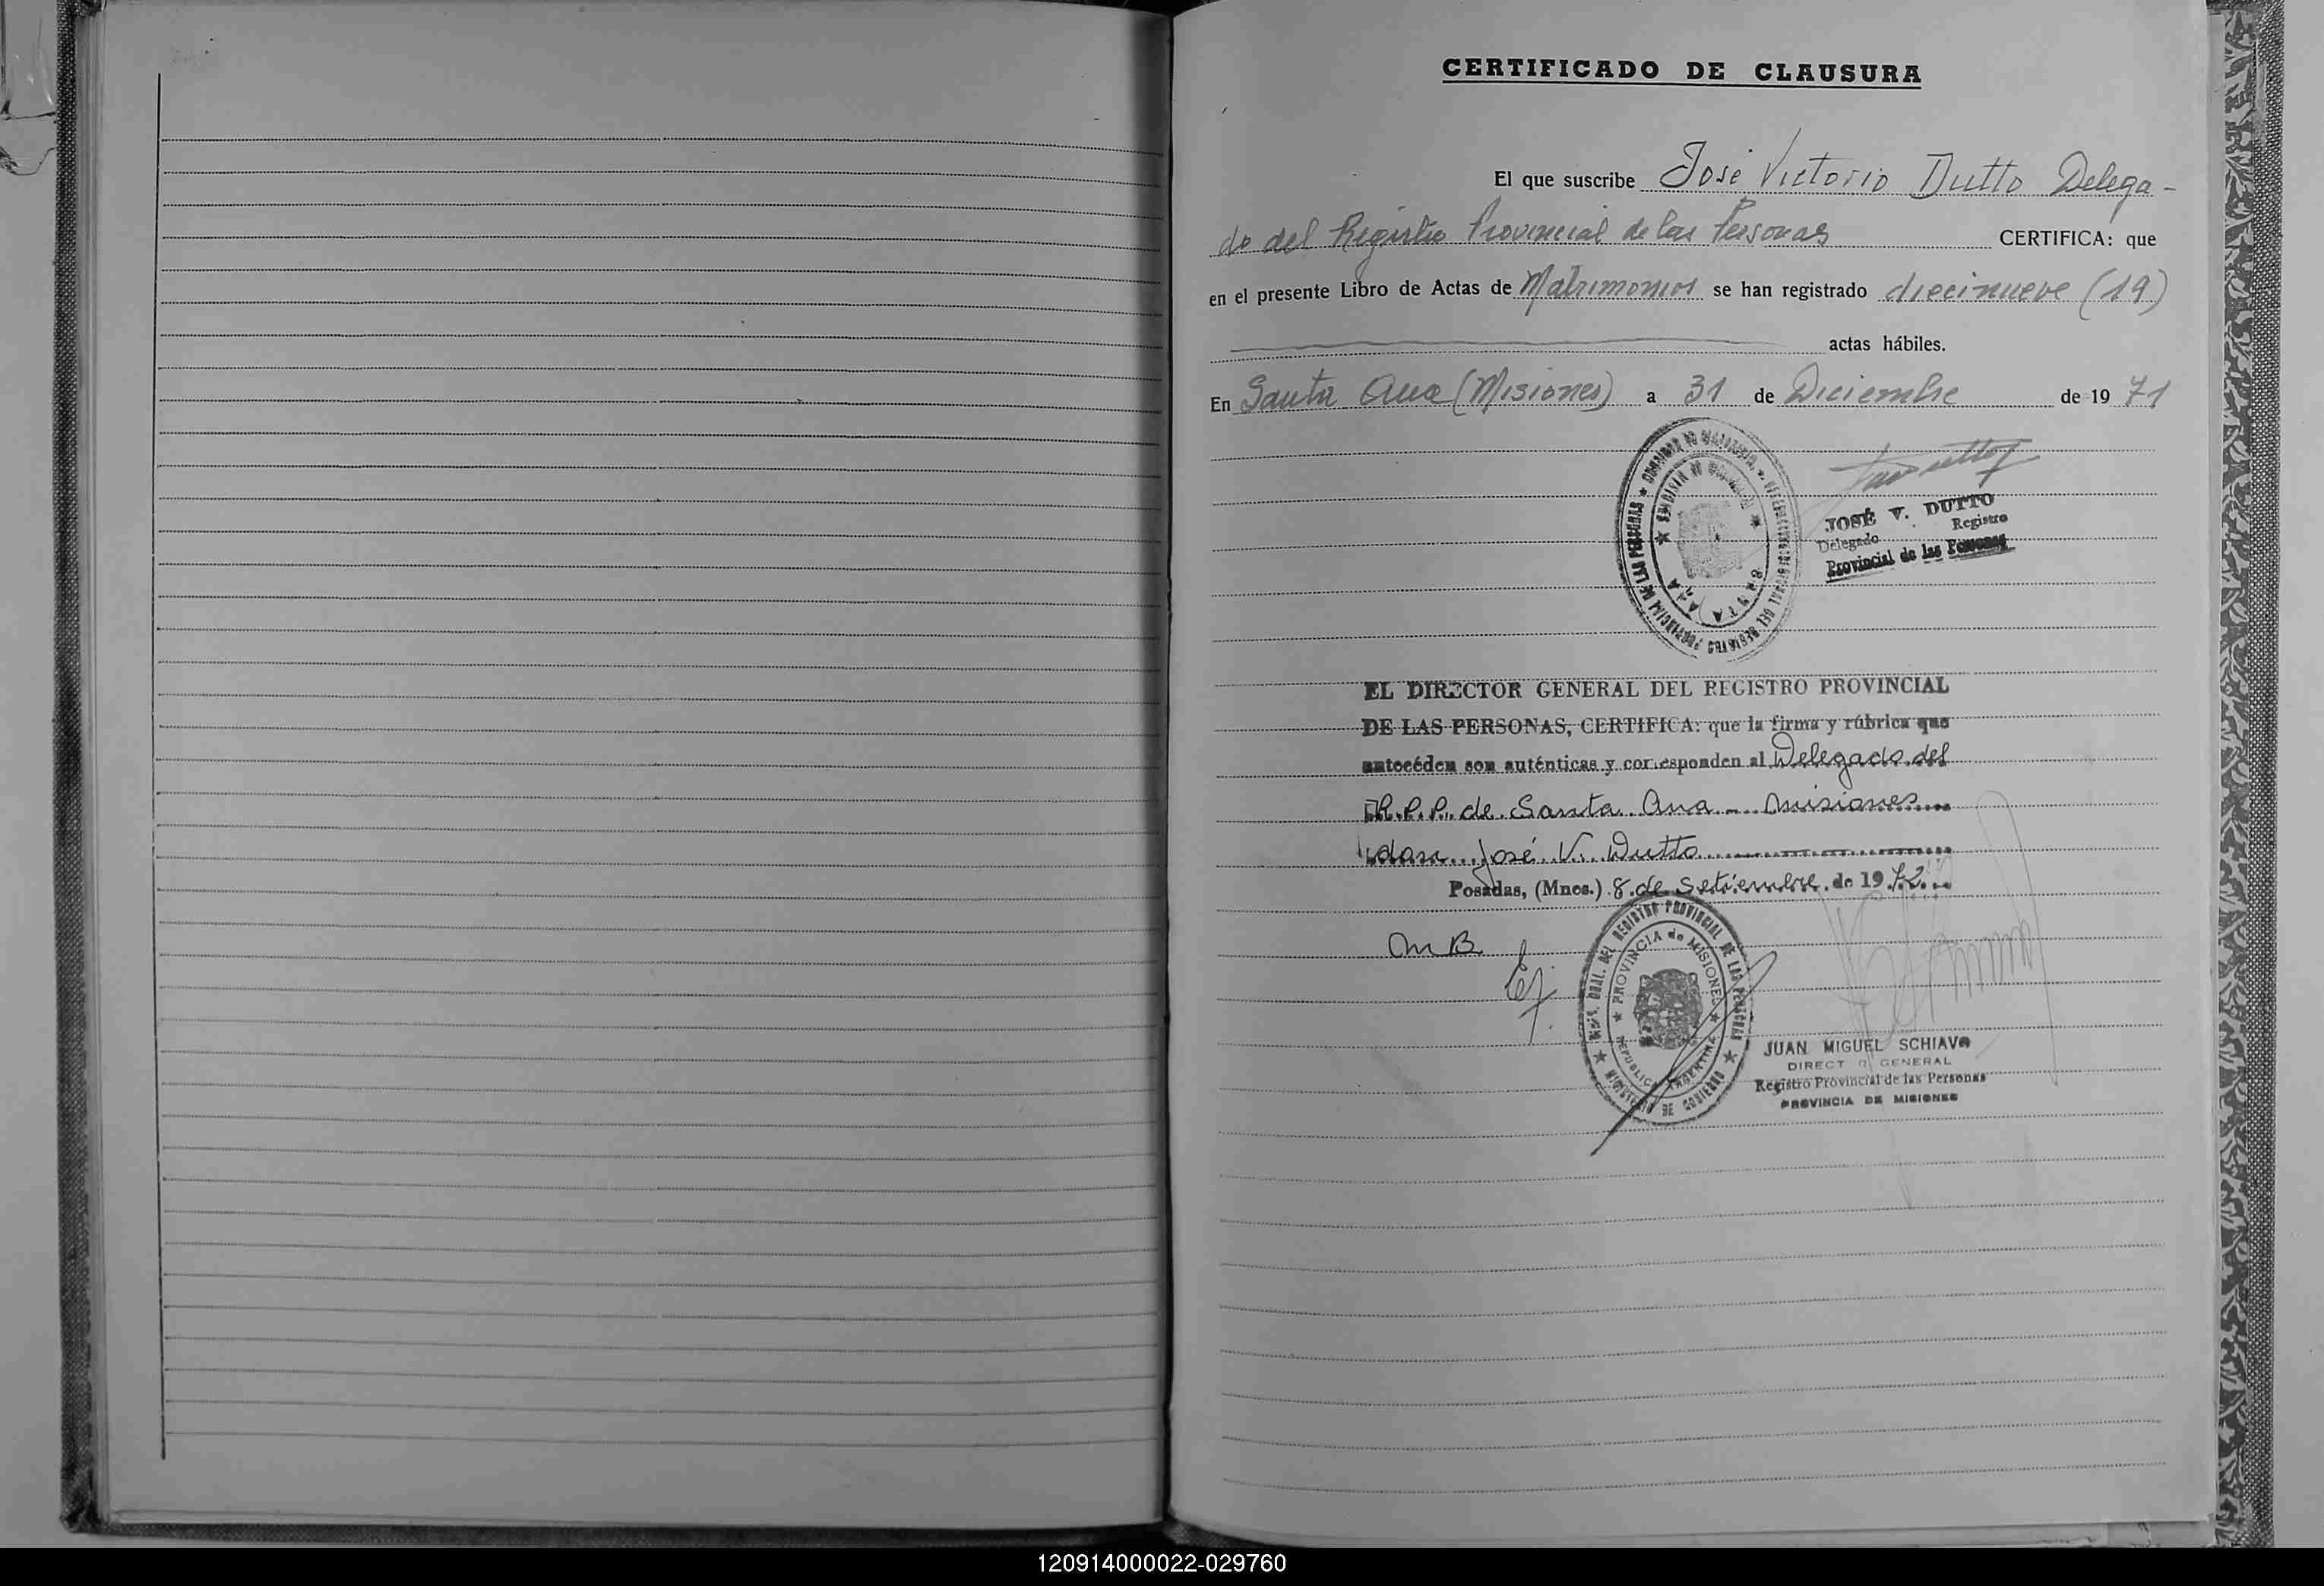 CERTIFICADO DE CLAUSURA
El que suscribe José Victorio Dutto Delega-
do del Registro Provincial de las Personas CERTIFICA: que
en el presente Libro de Actas de Matrimonios se han registrado diecinueve (19)
actas hábiles.
En Santa Ana (Misiones) a 31 de Diciembre de 1971
JOSÉ V. DUTTO
Delegado Registro
Provincial de las Personas
SANTA ANA
EL DIRECTOR GENERAL DEL REGISTRO PROVINCIAL
DE LAS PERSONAS, CERTIFICA: que la firma y rúbrica que
antecéden son auténticas y corresponden al Delegado del
R.P.P. de Santa Ana - Misiones
José V. Dutto
Posadas, (Mnes.) 8 de Setiembre de 1972
REGISTRO PROVINCIAL DE LAS PERSONAS
MINISTERIO DE GOBIERNO
PROVINCIA de MISIONES
REPUBLICA ARGENTINA
JUAN MIGUEL SCHIAVO
DIRECTOR GENERAL
Registro Provincial de las Personas
PROVINCIA DE MISIONES
120914000022-029760